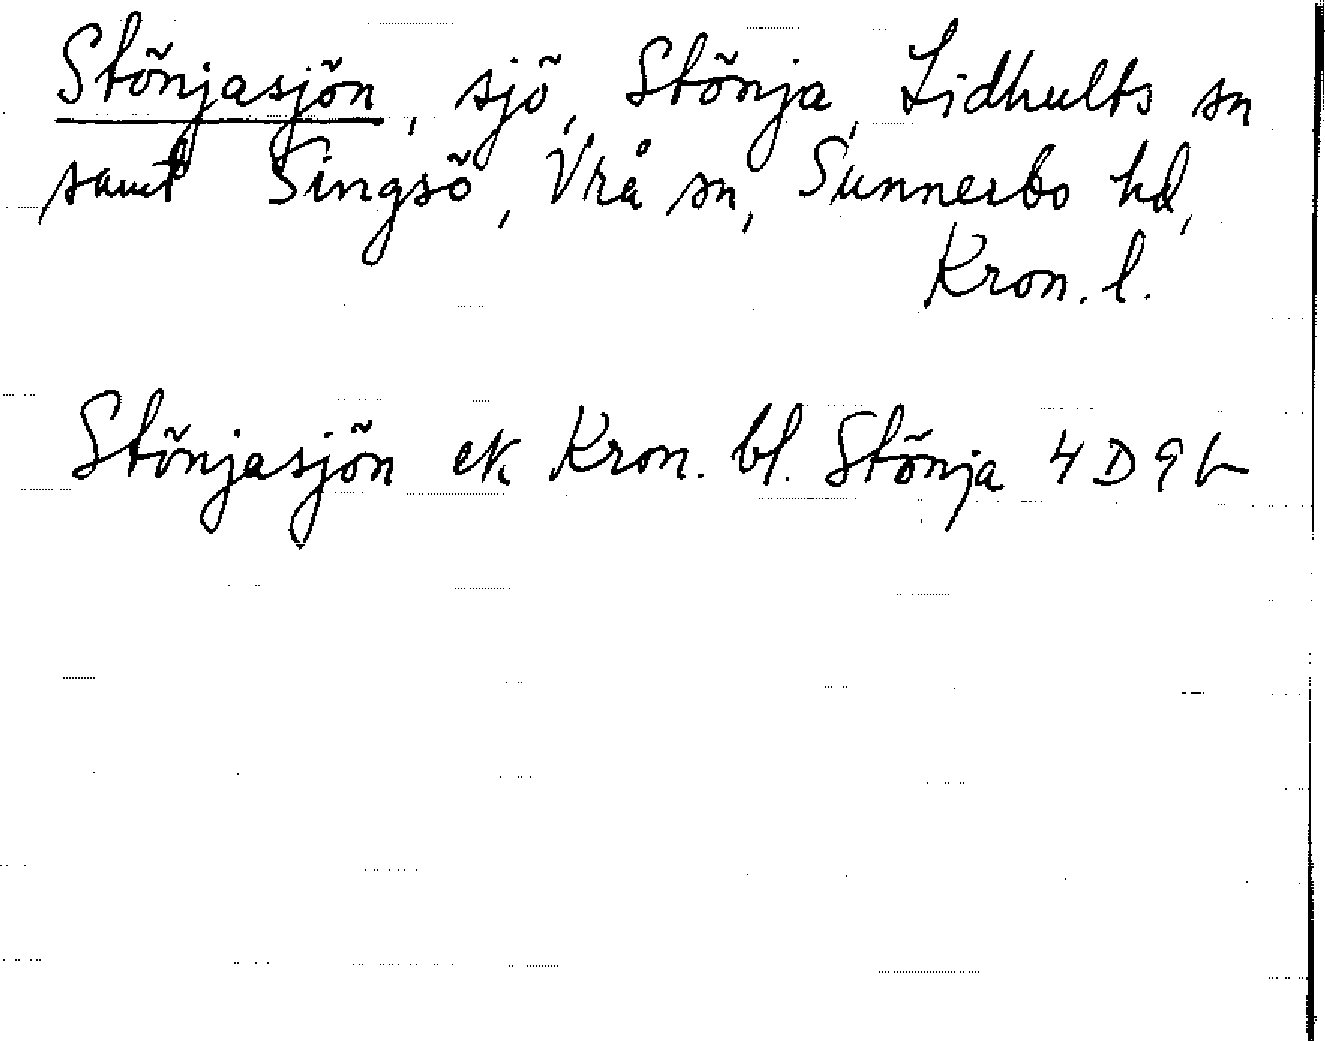 Stönjasjön, sjö, Stönja, Lidhults sn
samt Singsö, Vrå sn, Sunnerbo hd,
Kron. l.
Stönjasjön ek Kron. bl. Stönja 4 D 9 b